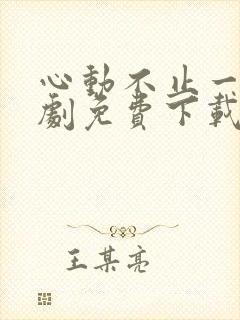 心動不止一
劇免費下載
王某亮